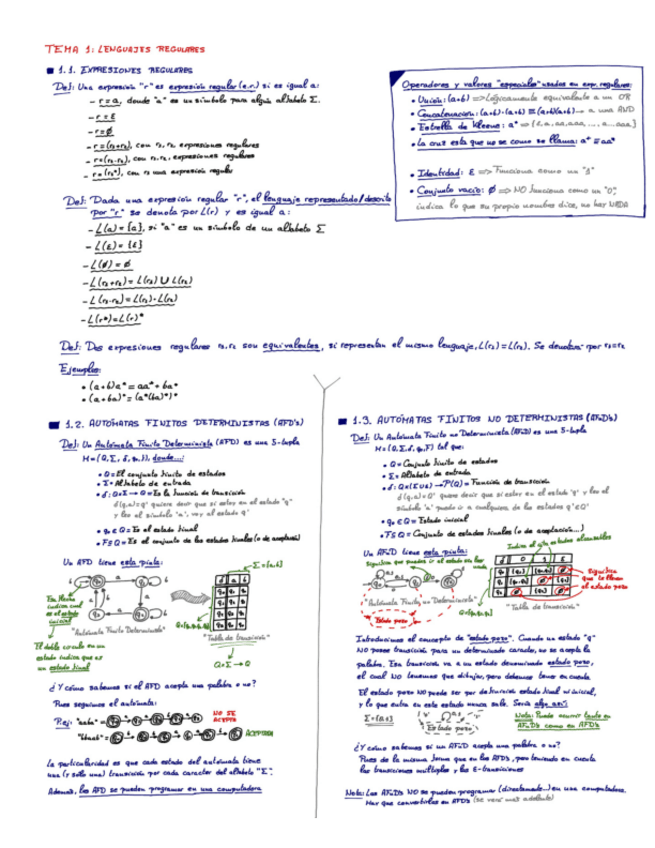 TEMA 1: LENGUAJES REGULARES
1.1. EXPRESIONES REGULARES
Def: Una expresión "r" es expresión regular (e.r.) si es igual a:
- r = a, donde "a" es un símbolo para algún alfabeto Σ.
- r = ε
- r = ∅
- r = (r₁+r₂), con r₁, r₂ expresiones regulares
- r = (r₁·r₂), con r₁, r₂, expresiones regulares
- r = (r₁*), con r₁ una expresión regular
Operadores y valores "especiales" usados en expr. regulares:
• Unión: (a+b) => Lógicamente equivalente a un OR
• Concatenación: (a+b)·(a+b) ≡ (a+b)(a+b) → a una AND
• Estrella de Kleene: a* => {ε, a, aa, aaa, ..., a...aaa}
• La cruz esta que no se como se llama: a⁺ ≡ aa*
• Identidad: ε => Funciona como un "1"
• Conjunto vacío: ∅ => NO funciona como un "0",
indica lo que su propio nombre dice, no hay NADA
Def: Dada una expresión regular "r", el lenguaje representado/descrito
por "r" se denota por L(r) y es igual a:
- L(a) = {a}, si "a" es un símbolo de un alfabeto Σ
- L(ε) = {ε}
- L(∅) = ∅
- L(r₁+r₂) = L(r₁) ∪ L(r₂)
- L(r₁·r₂) = L(r₁)·L(r₂)
- L(r*) = L(r)*
Def: Dos expresiones regulares r₁, r₂ son equivalentes, si representan el mismo lenguaje, L(r₁) = L(r₂). Se denotará por r₁=r₂
Ejemplos:
• (a+b)a* = aa* + ba*
• (a+ba)* = (a*(ba)*)*
1.2. AUTÓMATAS FINITOS DETERMINISTAS (AFD's)
Def: Un Autómata Finito Determinista (AFD) es una 5-tupla
donde...:
• Q = El conjunto finito de estados
• Σ = Alfabeto de entrada
• δ: Q×Σ → Q = Es la función de transición
δ(q,a)=q' quiere decir que si estoy en el estado "q"
y leo el símbolo "a", voy al estado q'
• q₀ ∈ Q = Es el estado
• F ⊆ Q = Es el conjunto de los estados finales (o de aceptación)
Un AFD tiene esta pinta:
Σ = {a,b}
Esa flecha
indica cual
es el estado
inicial
"Autómata Finito Determinista"
"Tabla de transición"
Q×Σ → Q
El doble círculo en un
estado indica que es
un estado final
¿Y cómo sabemos si el AFD acepta una palabra o no?
Pues seguimos el autómata:
NO SE
ACEPTA
ACEPTADA
La particularidad es que cada estado del autómata tiene
una (y sólo una) transición por cada caracter del alfabeto "Σ".
Además, los AFD se pueden programar en una computadora
1.3. AUTÓMATAS FINITOS NO DETERMINISTAS (AFnD's)
Def: Un Autómata Finito no Determinista (AFnD) es una 5-tupla
M = (Q, Σ, δ, q₀, F) tal que:
• Q = Conjunto finito de estados
• Σ = Alfabeto de entrada
• δ: Q×(Σ∪ε) → P(Q) = Función de transición
δ(q,a)=Q' quiere decir que si estoy en el estado 'q' y leo el
símbolo 'a' puedo ir a cualquiera de los estados q' ∈ Q'
• q₀ ∈ Q = Estado inicial
• F ⊆ Q = Conjunto de estados finales (o de aceptación...)
Un AFnD tiene esta pinta:
"Autómata Finito no Determinista"
Estado pozo
"Tabla de transición"
Significa
que te lleva
al estado pozo
Introducimos el concepto de "estado pozo". Cuando un estado "q"
NO posee transición para un determinado caracter, no se acepta la
palabra. Esa transición va a un estado denominado estado pozo,
el cual NO tenemos que dibujar, pero debemos tener en cuenta
El estado pozo NO puede ser por definición estado final ni inicial,
y lo que entra en este estado nunca sale. Sería algo así:
Estado pozo
Nota: Puede ocurrir tanto en
AFnD's como en AFD's
¿Y cómo sabemos si un AFnD acepta una palabra o no?
Pues de la misma forma que en los AFD's, pero teniendo en cuenta
las transiciones múltiples y las ε-transiciones
Nota: Los AFnDs NO se pueden programar (directamente...) en una computadora.
Hay que convertirlos en AFD's (se verá más adelante)